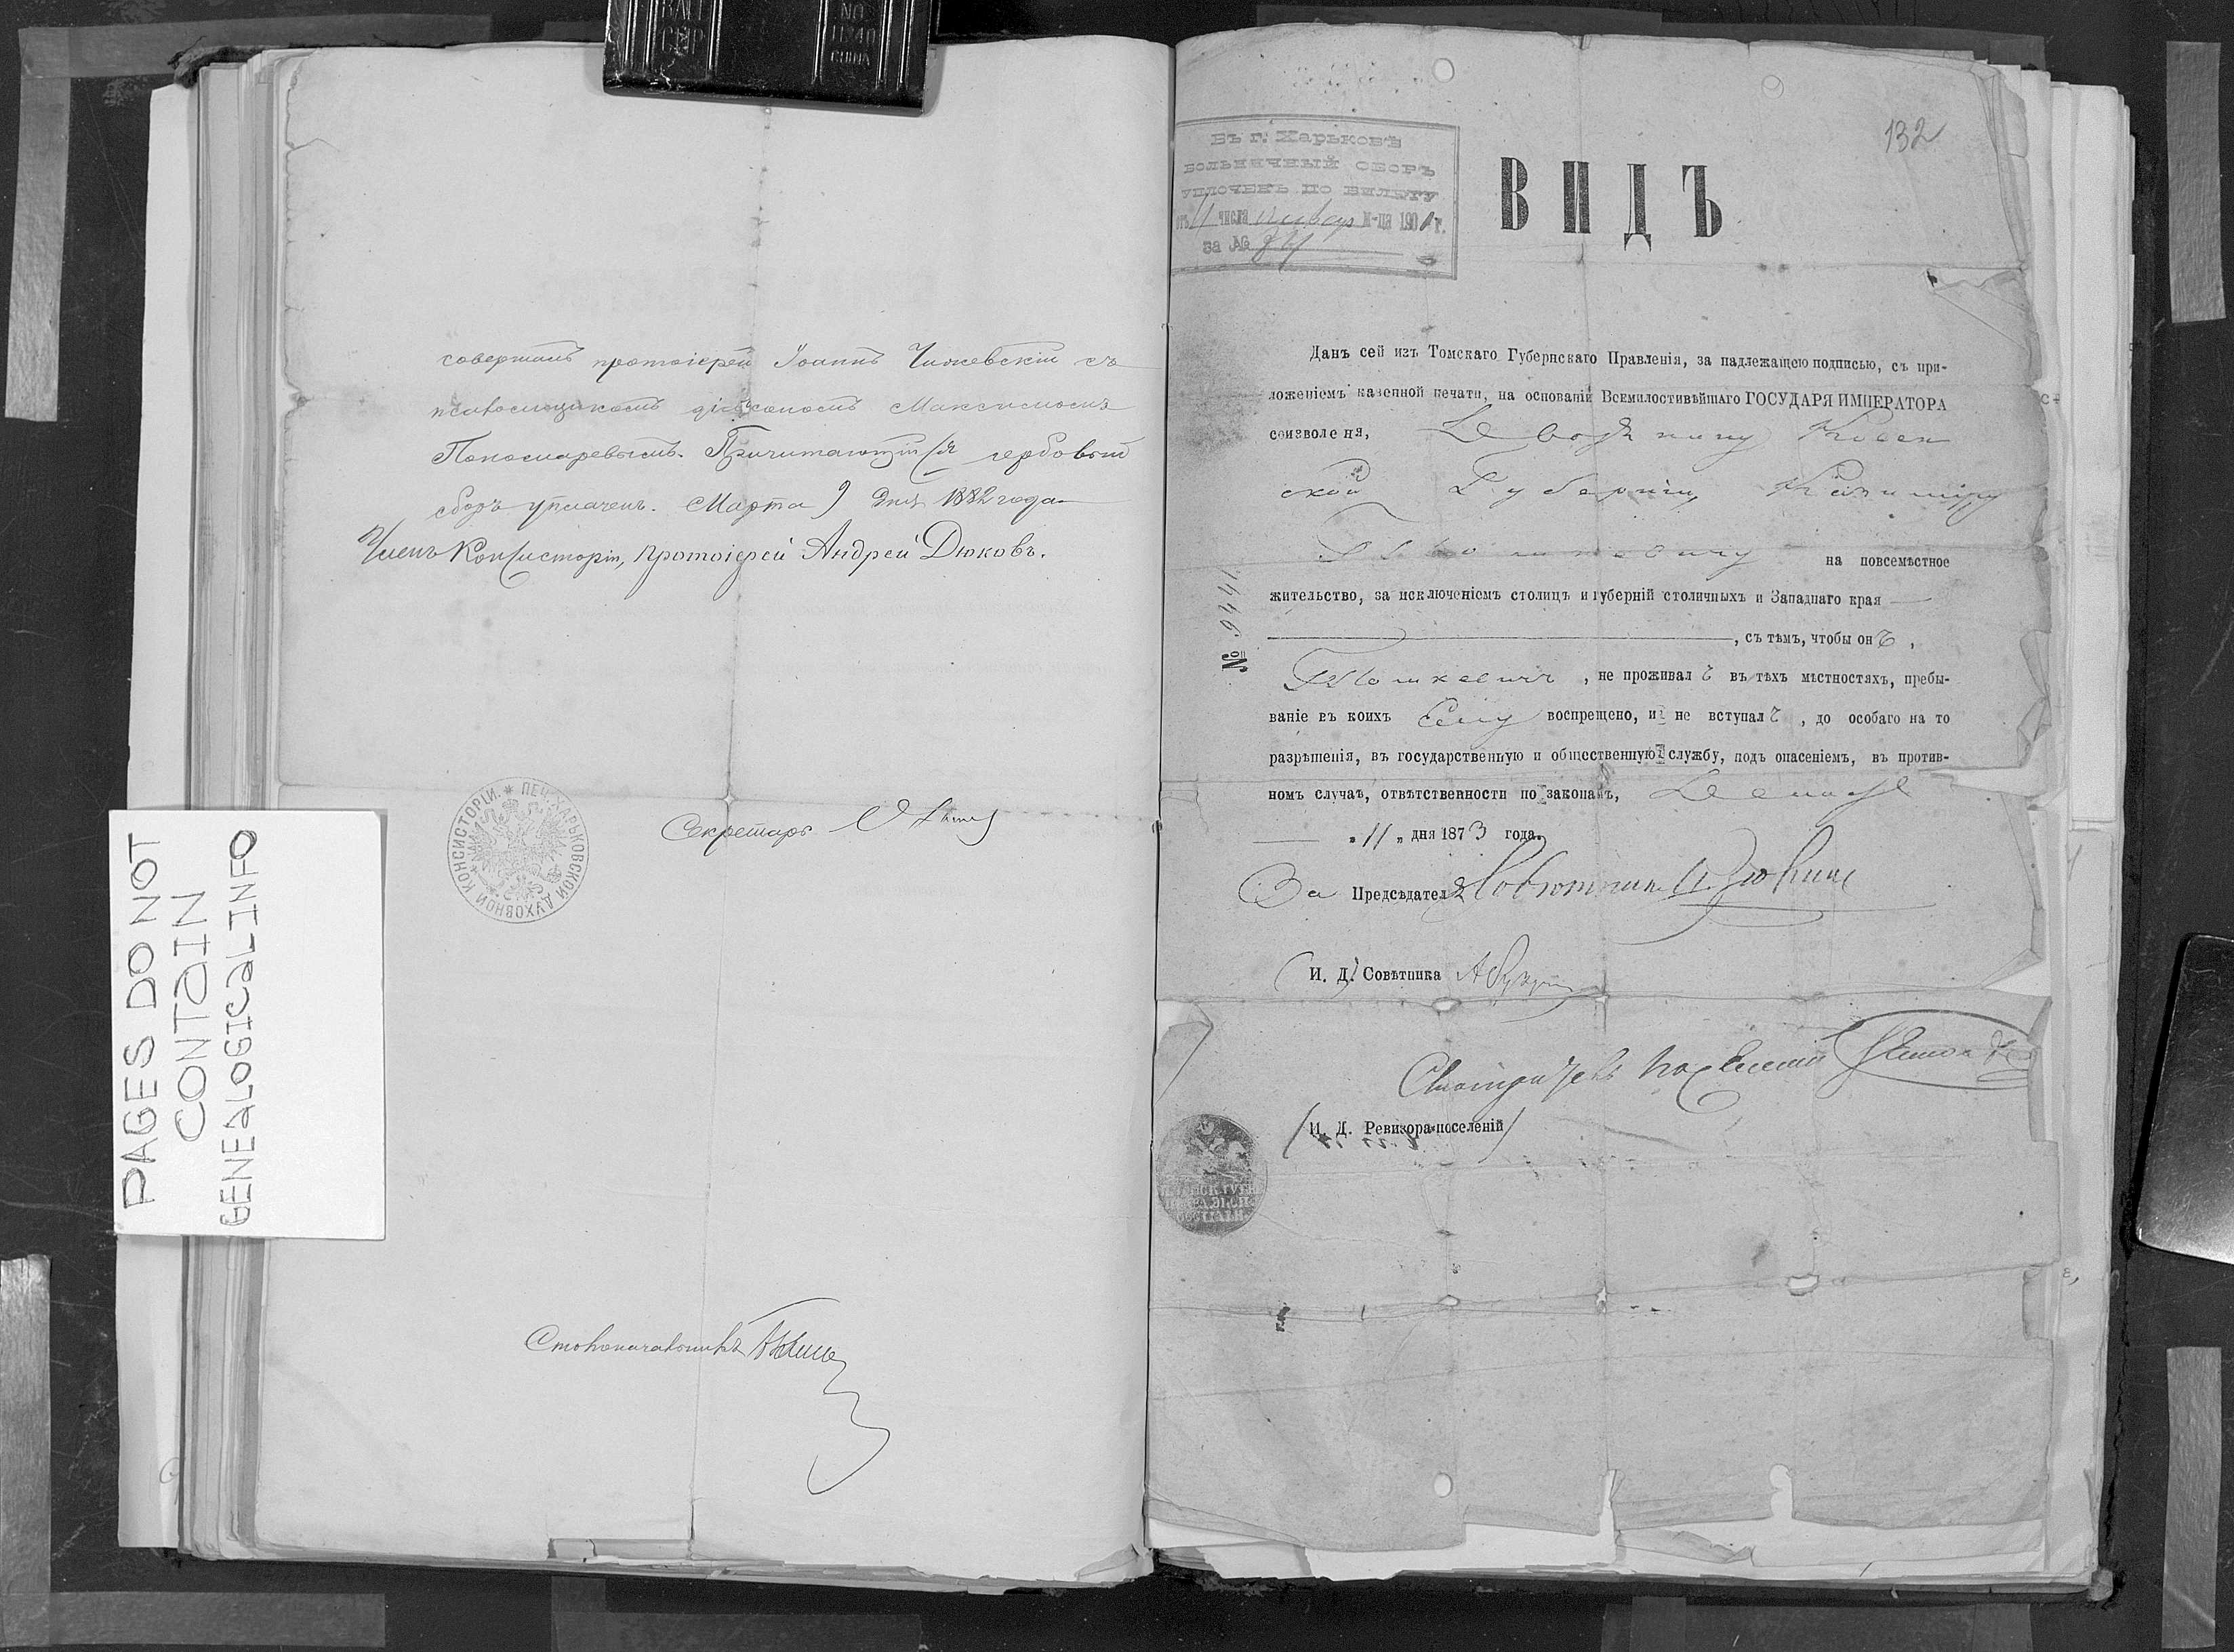 совершилъ протоіерей Іоаннъ Чижевскій съ
псаломщикомъ діакономъ Максимомъ
Пономаревымъ. Причитающійся гербовый
сборъ уплаченъ. Марта 9 дня 1882 года.
Членъ Консисторіи, Протоіерей Андрей Дюковъ.
Секретарь
ПЕЧ. ХАРЬКОВСКОЙ ДУХОВНОЙ КОНСИСТОРІИ.
Столоначальникъ
PAGES DO NOT
CONTAIN
GENEALOGICAL INFO
132
Въ г. Харьковѣ
БОЛЬНИЧНЫЙ СБОРЪ
УПЛОЧЕНЪ ПО БИЛЕТУ
отъ 11 числа январ м-ца 1901 г.
за №
ВИДЪ
Данъ сей изъ Томскаго Губернскаго Правленія, за надлежащею подписью, съ при-
ложеніемъ казенной печати, на основаніи Всемилостивѣйшаго ГОСУДАРЯ ИМПЕРАТОРА
соизволенія, Дворянину Ковен
ской Губерніи, Казиміру
на повсемѣстное
жительство, за исключеніемъ столицъ и губерній столичныхъ и Западнаго края
, съ тѣмъ, чтобы онъ,
, не проживалъ въ тѣхъ мѣстностяхъ, пребы-
ваніе въ коихъ Ему воспрещено, и не вступалъ, до особаго на то
разрѣшенія, въ государственную и общественную службу, подъ опасеніемъ, въ против-
номъ случаѣ, отвѣтственности по законамъ,
"11" дня 1873 года.
№ 9441.
За Предсѣдателя
(И. Д.) Совѣтника
Смотритель
(И. Д. Ревизора поселеній)